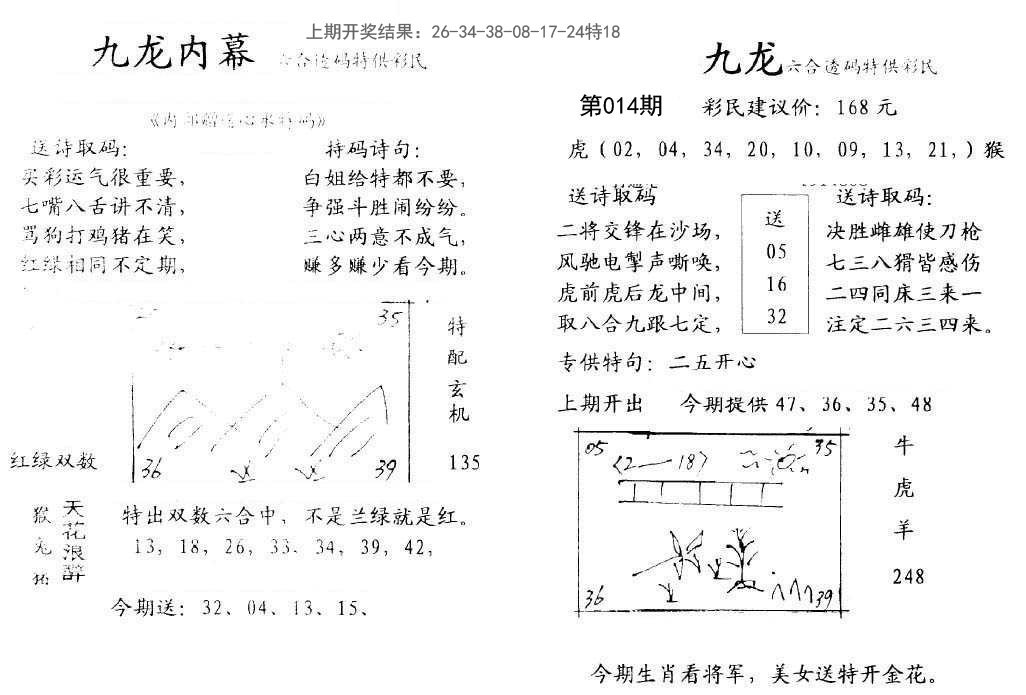 上期开奖结果：26-34-38-08-17-24特18
九龙内幕 六合透码特供彩民
送诗取码：
买彩运气很重要，
七嘴八舌讲不清，
骂狗打鸡猪在笑，
红绿相同不定期，
特码诗句：
白姐给特都不要，
争强斗胜闹纷纷。
三心两意不成气，
赚多赚少看今期。
35
36
39
特配玄机
135
红绿双数
猴
兔
天花浪醉
特出双数六合中，不是兰绿就是红。
13，18，26，33、34，39，42，
今期送：32、04、13、15、
九龙六合透码特供彩民
第014期 彩民建议价：168元
虎（02，04，34，20，10，09，13，21，）猴
送诗取码
二将交锋在沙场，
风驰电掣声嘶唤，
虎前虎后龙中间，
取八合九跟七定，
送
05
16
32
送诗取码：
决胜雌雄使刀枪
七三八猾皆感伤
二四同床三来一
注定二六三四来。
专供特句：二五开心
上期开出 今期提供47、36、35、48
05
35
36
39
牛
虎
羊
248
今期生肖看将军，美女送特开金花。